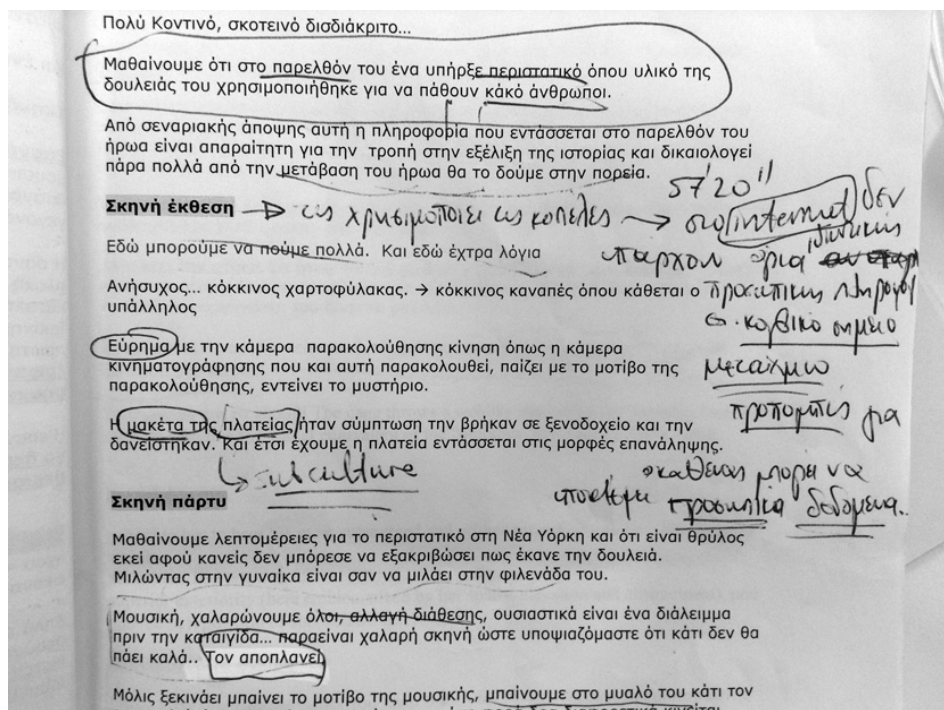 Πολύ Κοντινό, σκοτεινό δισδιάκριτο...
Μαθαίνουμε ότι στο παρελθόν του ένα υπήρξε περιστατικό όπου υλικό της
δουλειάς του χρησιμοποιήθηκε για να πάθουν κάκό άνθρωποι.
Από σεναριακής άποψης αυτή η πληροφορία που εντάσσεται στο παρελθόν του
ήρωα είναι απαραίτητη για την τροπή στην εξέλιξη της ιστορίας και δικαιολογεί
πάρα πολλά από την μετάβαση του ήρωα θα το δούμε στην πορεία.
57'20''
Σκηνή έκθεση → χρησιμοποιεί τις κοπέλες → στο internet δεν
Εδώ μπορούμε να πούμε πολλά. Και εδώ έχτρα λόγια
όρια ιδιωτικής
Ανήσυχος... κόκκινος χαρτοφύλακας. → κόκκινος καναπές όπου κάθεται ο
υπάλληλος
προσωπικής
σημείο
Εύρημα με την κάμερα παρακολούθησης κίνηση όπως η κάμερα
κινηματογράφησης που και αυτή παρακολουθεί, παίζει με το μοτίβο της
παρακολούθησης, εντείνει το μυστήριο.
μεταίχμιο
προπομπός για
Η μακέτα της πλατείας ήταν σύμπτωση την βρήκαν σε ξενοδοχείο και την
δανείστηκαν. Και έτσι έχουμε η πλατεία εντάσσεται στις μορφές επανάληψης.
subculture
ο καθένας μπορεί να
προσωπικά δεδομένα..
Σκηνή πάρτυ
Μαθαίνουμε λεπτομέρειες για το περιστατικό στη Νέα Υόρκη και ότι είναι θρύλος
εκεί αφού κανείς δεν μπόρεσε να εξακριβώσει πως έκανε την δουλειά.
Μιλώντας στην γυναίκα είναι σαν να μιλάει στην φιλενάδα του.
Μουσική, χαλαρώνουμε όλοι, αλλαγή διάθεσης, ουσιαστικά είναι ένα διάλειμμα
πριν την καταιγίδα... παραείναι χαλαρή σκηνή ώστε υποψιαζόμαστε ότι κάτι δεν θα
πάει καλά.. Τον αποπλανεί
Μόλις ξεκινάει μπαίνει το μοτίβο της μουσικής, μπαίνουμε στο μυαλό του κάτι τον